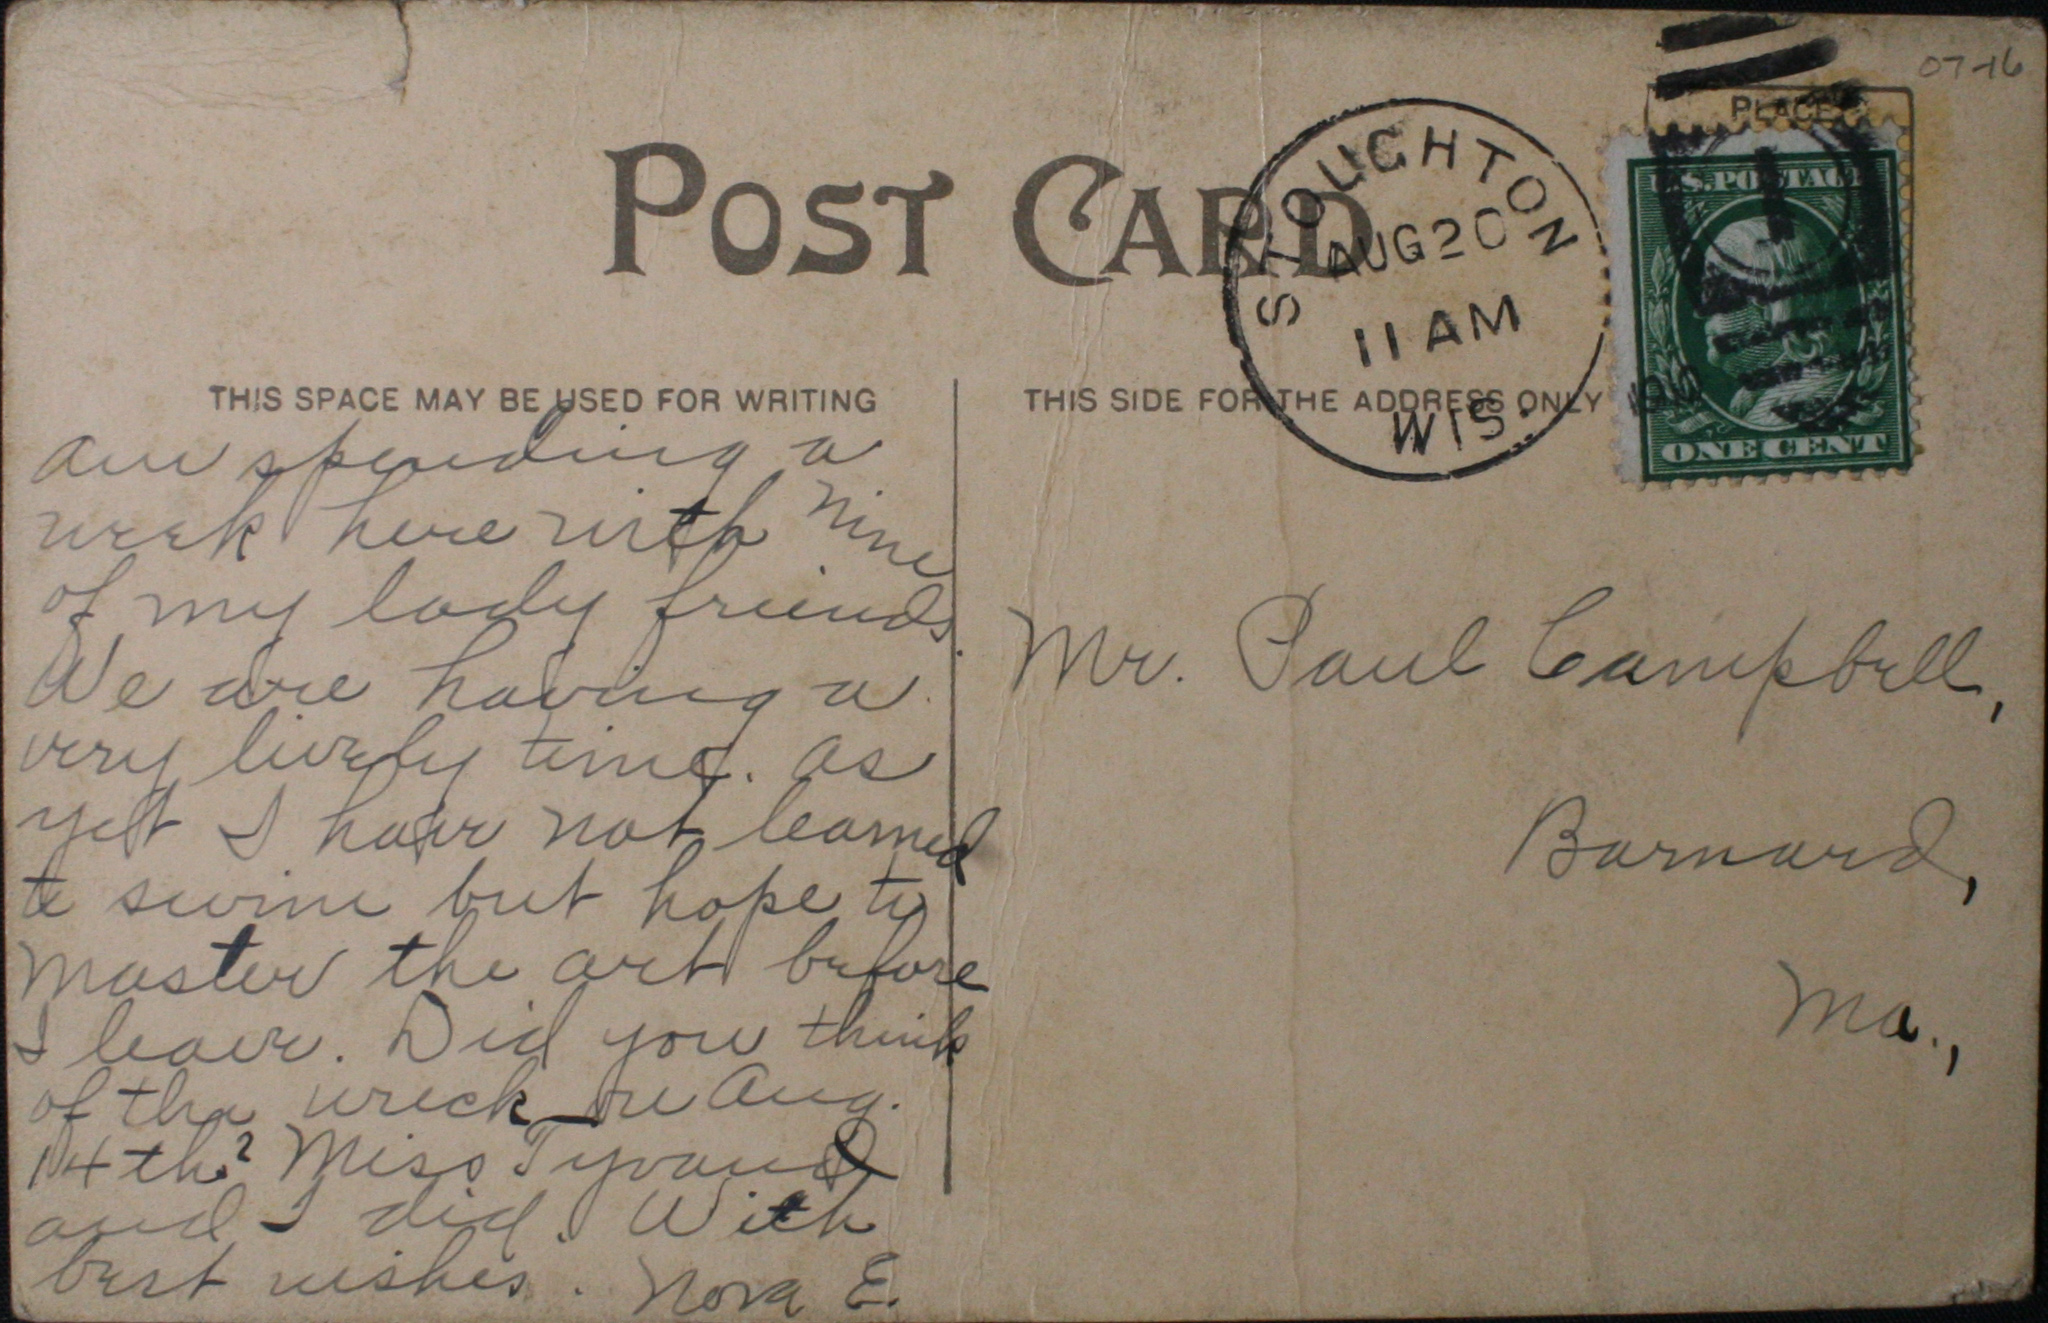 07-16
PLACE
POST CARD
STOUGHTON
AUG 20
11 AM
WIS.
U.S. POSTAGE
ONE CENT
THIS SPACE MAY BE USED FOR WRITING
THIS SIDE FOR THE ADDRESS ONLY
Am spending a
week here with nine
of my lady friends.
We are having a
very lively time. As
yet I have not learned
to swim but hope to
master the art before
I leave. Did you think
of the wreck on Aug.
14th? Miss Tyvand
and I did. With
best wishes. Nora E.
Mr. Paul Campbell,
Barnard,
Mo.,